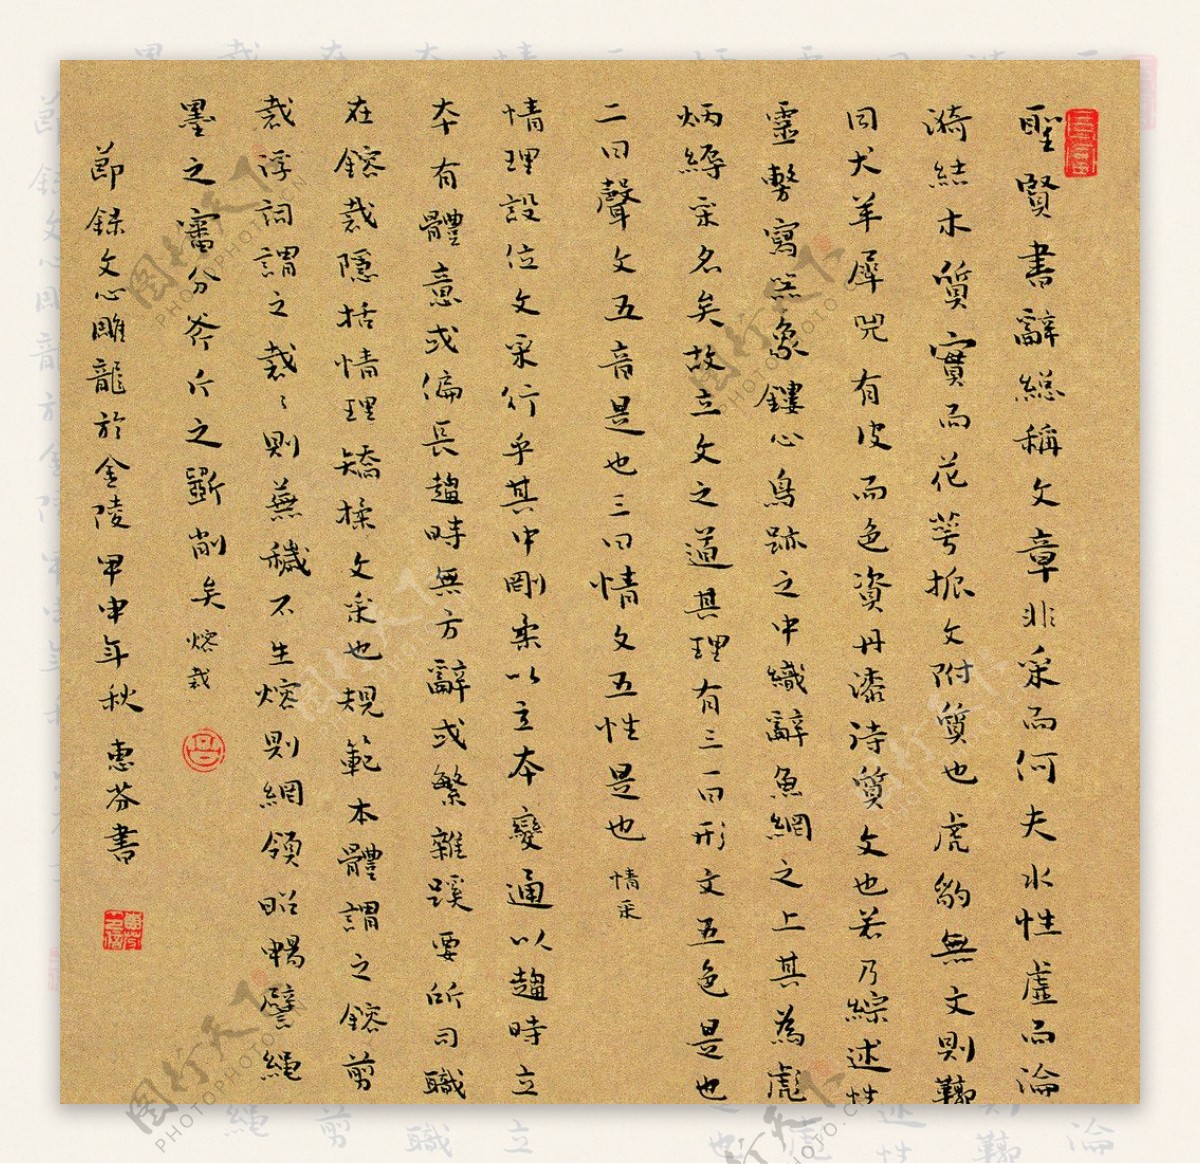 聖賢書辭總稱文章非采而何夫水性虛而淪
漪結木質實而花萼振文附質也虎豹無文則鞹
同犬羊犀兕有皮而色資丹漆詩質文也若乃綜述性
靈敷寫器象鏤心鳥跡之中織辭魚網之上其為彪
炳縟采名矣故立文之道其理有三一曰形文五色是也
二曰聲文五音是也三曰情文五性是也 情采
情理設位文采行乎其中剛柔以立本變通以趨時立
本有體意或偏長趨時無方辭或繁雜蹊要所司職
在鎔裁隱括情理矯揉文采也規範本體謂之鎔剪
裁浮詞謂之裁裁〻則蕪穢不生熔則綱領昭暢譬繩
墨之審分斧斤之斲削矣 熔裁
節錄文心雕龍於金陵甲申年秋 惠芬書
图行天下 PHOTOPHOTO.CN